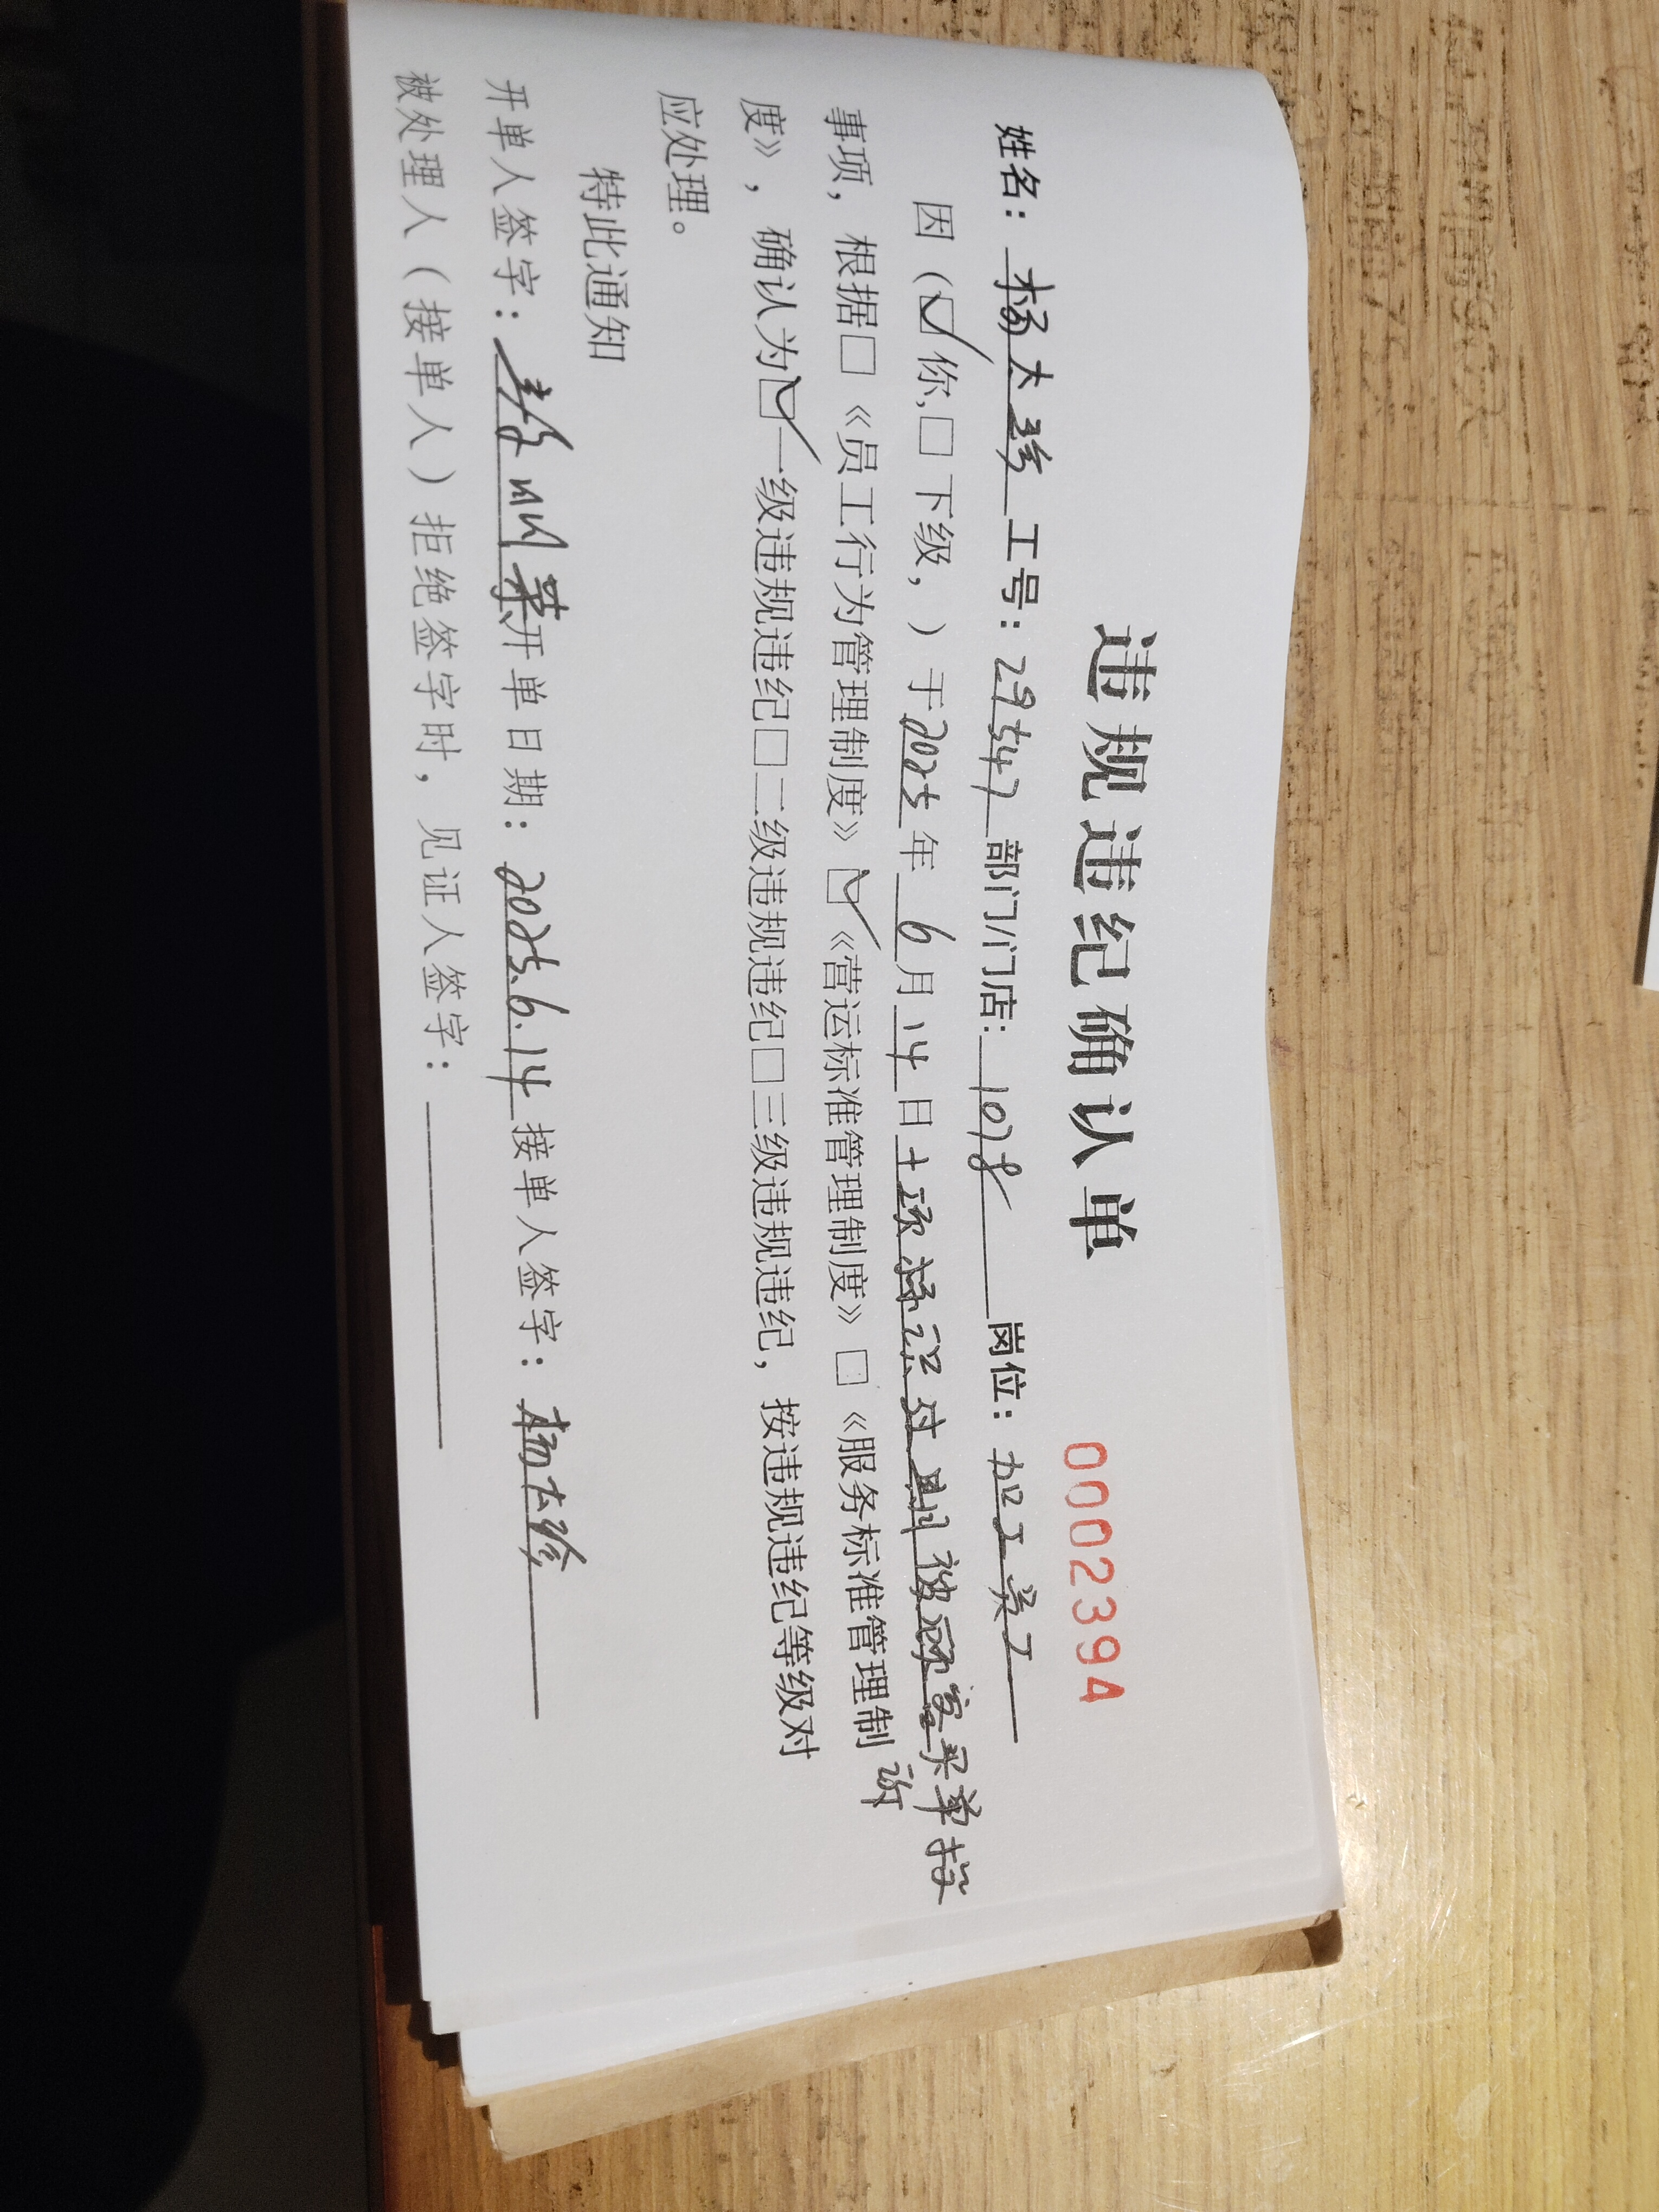 违规违纪确认单 0002394
姓名：杨大珍 工号：29547 部门/门店：1028 岗位：加工员工
因（☑你,□下级，）于2025年6月14日土豆标识过期被顾客买单投诉
事项，根据□《员工行为管理制度》☑《营运标准管理制度》□《服务标准管理制
度》，确认为☑一级违规违纪□二级违规违纪□三级违规违纪，按违规违纪等级对
应处理。
特此通知
开单人签字： 开单日期：2025.6.14 接单人签字：杨大珍
被处理人（接单人）拒绝签字时，见证人签字：